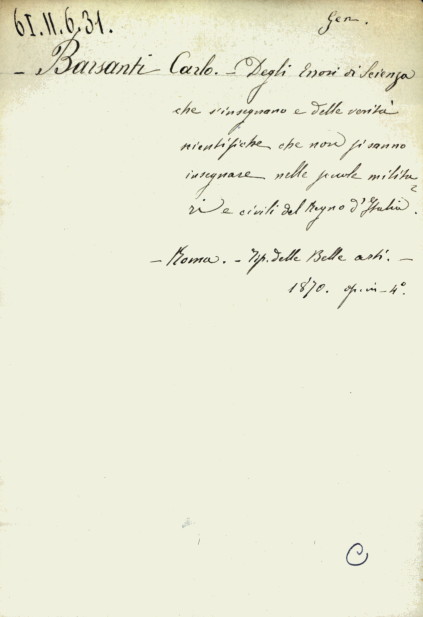 61.II.6.31.
Gen.
- Barsanti Carlo. - Degli Errori di Scienza
che s'insegnano e delle verità
scientifiche che non si sanno
insegnare nelle scuole milita=
ri e civili del Regno d'Italia.
- Roma. - Tip. delle Belle arti. -
1870. op. in-4º.
C